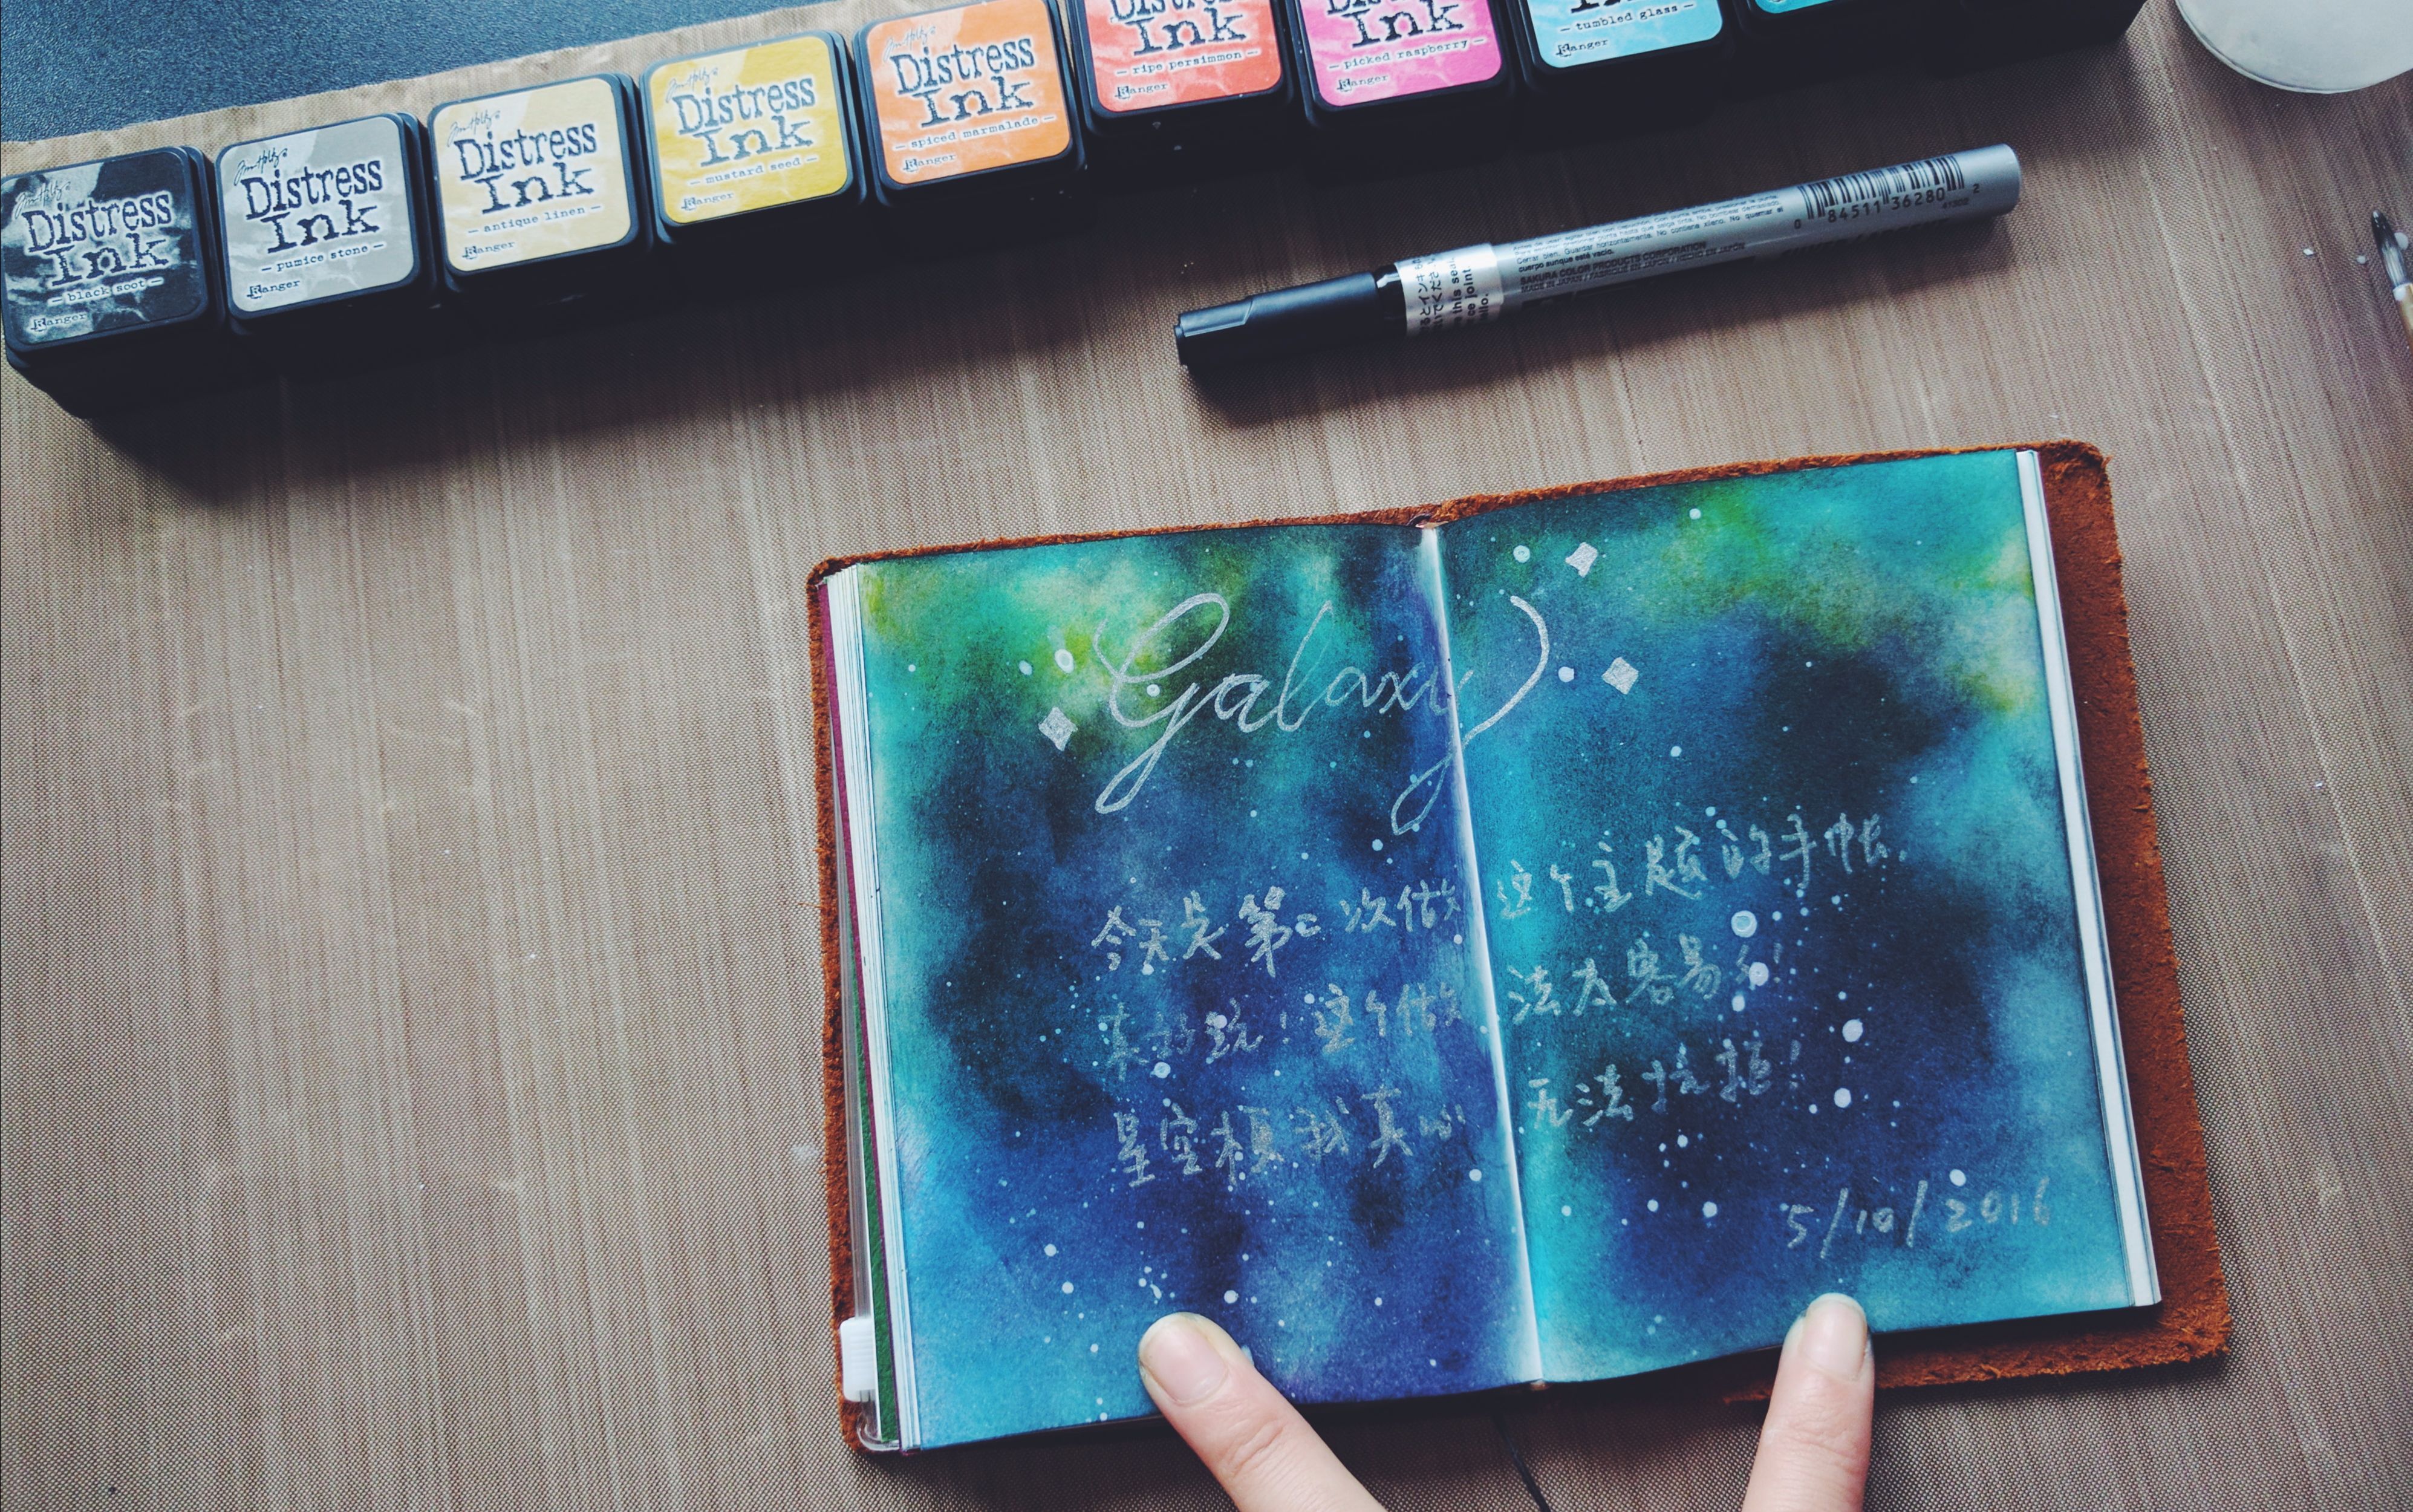 Tim Holtz
Distress
Ink
black soot
Ranger
Tim Holtz
Distress
Ink
pumice stone
Ranger
Tim Holtz
Distress
Ink
antique linen
Ranger
Tim Holtz
Distress
Ink
mustard seed
Ranger
Tim Holtz
Distress
Ink
spiced marmalade
Ranger
Distress
Ink
ripe persimmon
Ranger
Ink
picked raspberry
Ranger
tumbled glass
Ranger
0 84511 36280 2
SAKURA COLOR PRODUCTS CORPORATION
MADE IN JAPAN
Galaxy
今天是第二次做这个主题的手帐,
来的玩!这个做法太容易了!
星空梗我真心无法抗拒!
5/10/2016